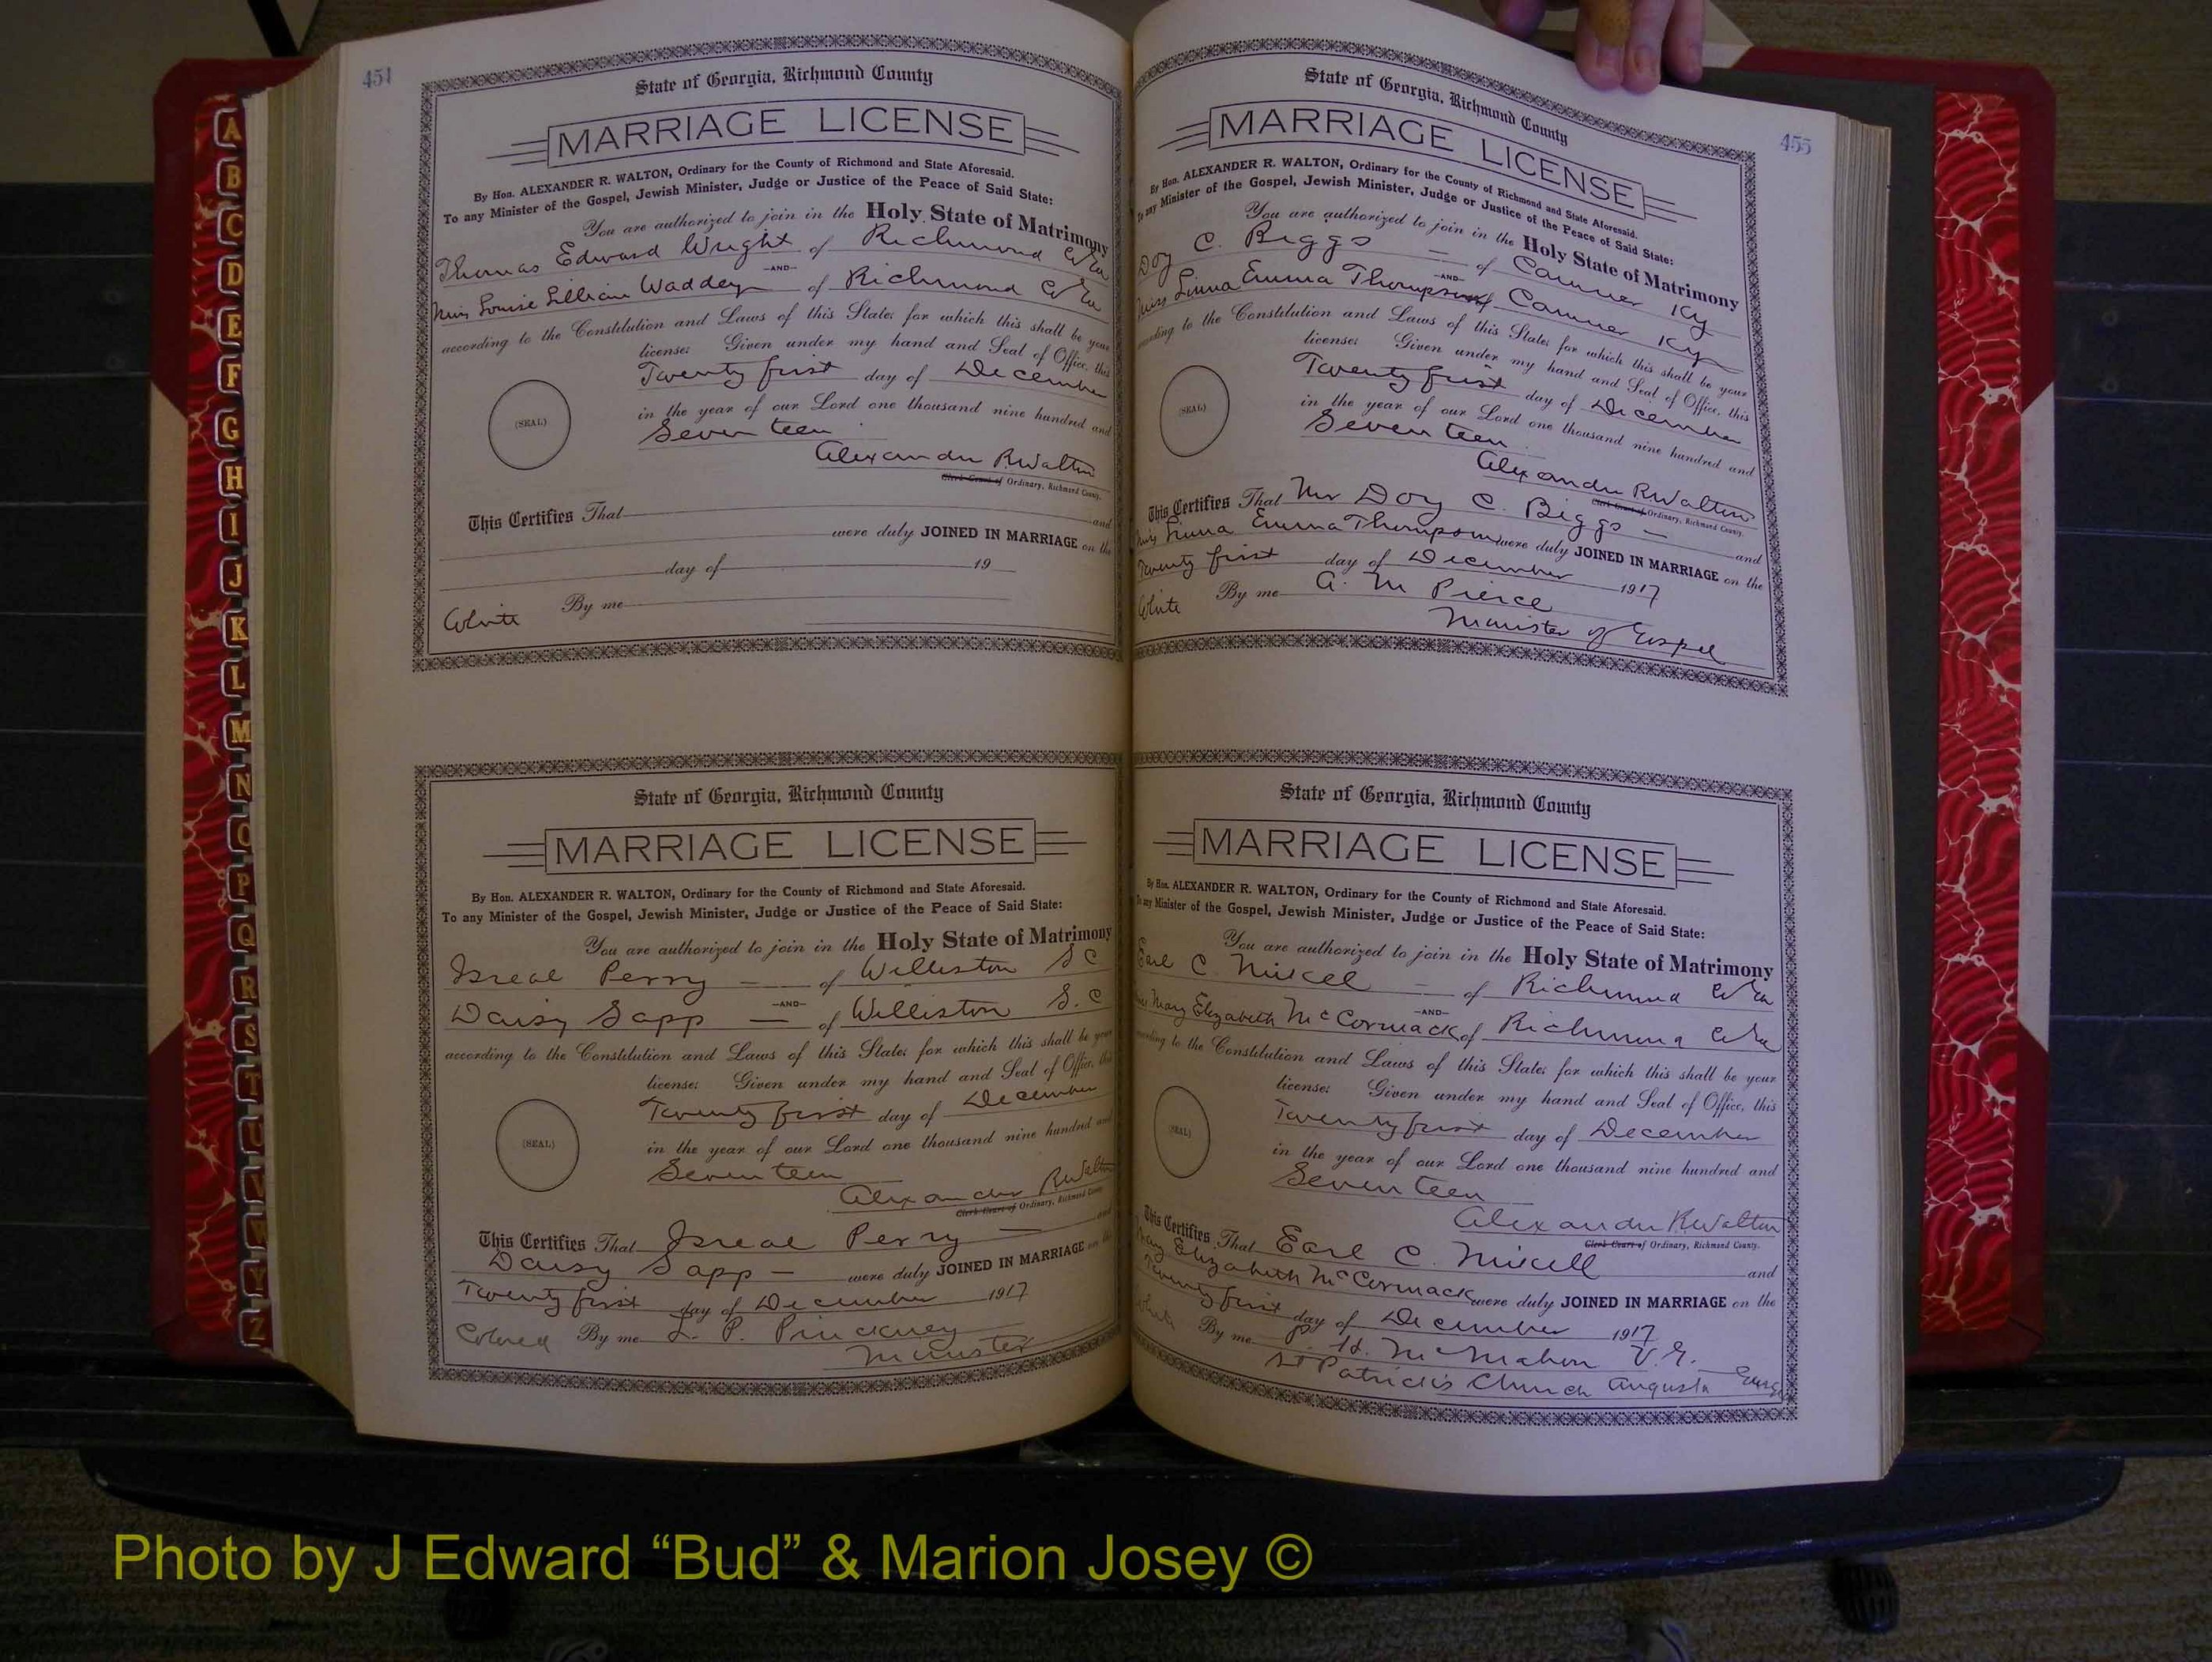 454
State of Georgia, Richmond County
MARRIAGE LICENSE
By Hon. ALEXANDER R. WALTON, Ordinary for the County of Richmond and State Aforesaid.
To any Minister of the Gospel, Jewish Minister, Judge or Justice of the Peace of Said State:
You are authorized to join in the Holy State of Matrimony
Thomas Edward Wright of Richmond Co Ga
—AND—
Miss Louise Lillian Waddey of Richmond Co Ga
according to the Constitution and Laws of this State; for which this shall be your
license: Given under my hand and Seal of Office, this
Twenty first day of December
(SEAL)
in the year of our Lord one thousand nine hundred and
Seventeen
Alexander R Walton
Clerk Court of Ordinary, Richmond County.
This Certifies That and
were duly JOINED IN MARRIAGE on the
day of 19
White By me
State of Georgia, Richmond County
MARRIAGE LICENSE
By Hon. ALEXANDER R. WALTON, Ordinary for the County of Richmond and State Aforesaid.
To any Minister of the Gospel, Jewish Minister, Judge or Justice of the Peace of Said State:
You are authorized to join in the Holy State of Matrimony
Isreal Perry of Williston S C
—AND—
Daisy Sapp of Williston S. C
according to the Constitution and Laws of this State; for which this shall be your
license: Given under my hand and Seal of Office, this
Twenty first day of December
(SEAL)
in the year of our Lord one thousand nine hundred and
Seventeen
Alexander R Walton
Clerk Court of Ordinary, Richmond County
This Certifies That Isreal Perry and
Daisy Sapp were duly JOINED IN MARRIAGE on the
Twenty first day of December 1917
Colored By me L. P. Pinckney
Minister
455
State of Georgia, Richmond County
MARRIAGE LICENSE
By Hon. ALEXANDER R. WALTON, Ordinary for the County of Richmond and State Aforesaid.
To any Minister of the Gospel, Jewish Minister, Judge or Justice of the Peace of Said State:
You are authorized to join in the Holy State of Matrimony
Doy C. Biggs of Canmer Ky
—AND—
Miss Linna Emma Thompson of Canmer Ky
according to the Constitution and Laws of this State; for which this shall be your
license: Given under my hand and Seal of Office, this
Twenty first day of December
(SEAL)
in the year of our Lord one thousand nine hundred and
Seventeen
Alexander R Walton
Clerk Court of Ordinary, Richmond County.
This Certifies That Mr Doy C. Biggs and
Miss Linna Emma Thompson were duly JOINED IN MARRIAGE on the
Twenty first day of December 1917
White By me A. M Pierce
Minister of Gospel
State of Georgia, Richmond County
MARRIAGE LICENSE
By Hon. ALEXANDER R. WALTON, Ordinary for the County of Richmond and State Aforesaid.
To any Minister of the Gospel, Jewish Minister, Judge or Justice of the Peace of Said State:
You are authorized to join in the Holy State of Matrimony
Earl C. Mixell of Richmond Co Ga
—AND—
Miss Mary Elizabeth McCormack of Richmond Co Ga
according to the Constitution and Laws of this State; for which this shall be your
license: Given under my hand and Seal of Office, this
Twenty first day of December
(SEAL)
in the year of our Lord one thousand nine hundred and
Seventeen
Alexander R Walton
Clerk Court of Ordinary, Richmond County.
This Certifies That Earl C. Mixell and
Mary Elizabeth McCormack were duly JOINED IN MARRIAGE on the
Twenty first day of December 1917
White By me P. H. McMahon V. G.
St Patrick's Church Augusta
A
B
C
D
E
F
G
H
I
J
K
L
M
N
O
P
Q
R
S
T
U
V
W
Y
Z
Photo by J Edward “Bud” & Marion Josey ©